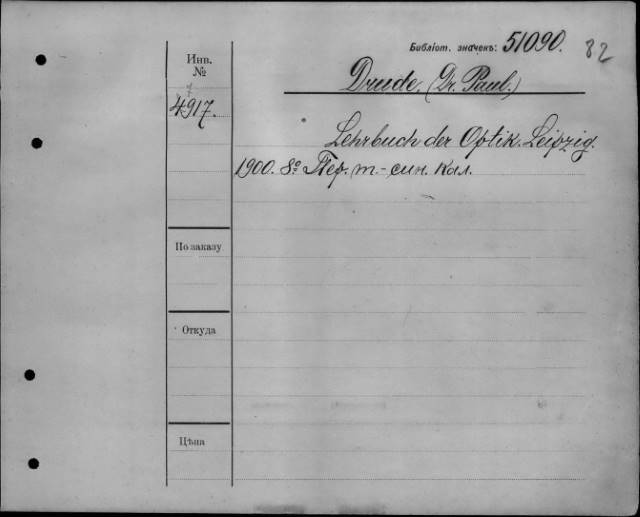 Библіот. значекъ: 51090. 82
Инв.
№
Drude. (Dr. Paul.)
4917.
Lehrbuch der Optik. Leipzig.
1900. 8º Пер. т.-син. кал.
По заказу
Откуда
Цѣна